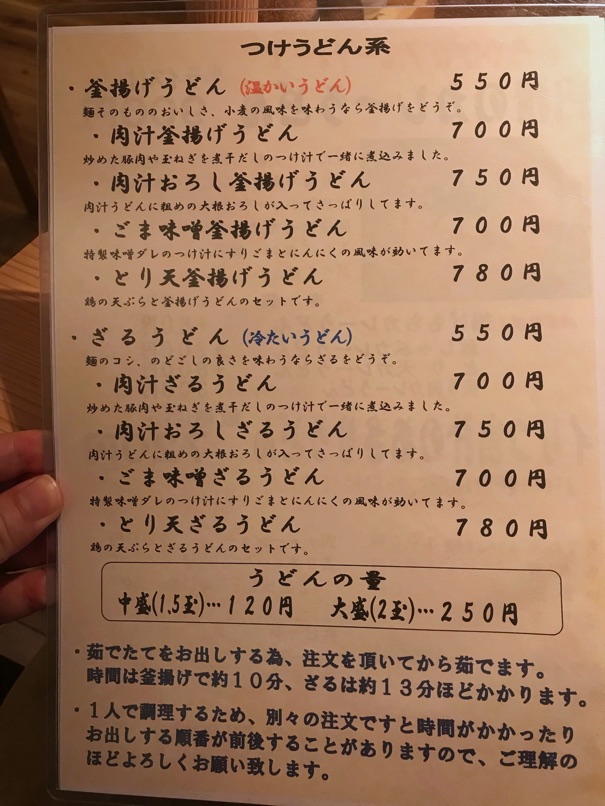 つけうどん系
・釜揚げうどん (温かいうどん) 550円
麺そのもののおいしさ、小麦の風味を味わうなら釜揚げをどうぞ。
・肉汁釜揚げうどん 700円
炒めた豚肉や玉ねぎを煮干だしのつけ汁で一緒に煮込みました。
・肉汁おろし釜揚げうどん 750円
肉汁うどんに粗めの大根おろしが入ってさっぱりしてます。
・ごま味噌釜揚げうどん 700円
特製味噌ダレのつけ汁にすりごまとにんにくの風味が効いてます。
・とり天釜揚げうどん 780円
鶏の天ぷらと釜揚げうどんのセットです。
・ざるうどん (冷たいうどん) 550円
麺のコシ、のどごしの良さを味わうならざるをどうぞ。
・肉汁ざるうどん 700円
炒めた豚肉や玉ねぎを煮干だしのつけ汁で一緒に煮込みました。
・肉汁おろしざるうどん 750円
肉汁うどんに粗めの大根おろしが入ってさっぱりしてます。
・ごま味噌ざるうどん 700円
特製味噌ダレのつけ汁にすりごまとにんにくの風味が効いてます。
・とり天ざるうどん 780円
鶏の天ぷらとざるうどんのセットです。
うどんの量
中盛(1,5玉)…120円 大盛(2玉)…250円
・茹でたてをお出しする為、注文を頂いてから茹でます。
時間は釜揚げで約10分、ざるは約13分ほどかかります。
・1人で調理するため、別々の注文ですと時間がかかったり
お出しする順番が前後することがありますので、ご理解の
ほどよろしくお願い致します。